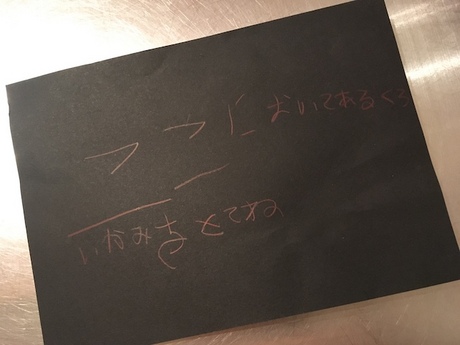 ここにおいてあるくろ
いかみをとてね